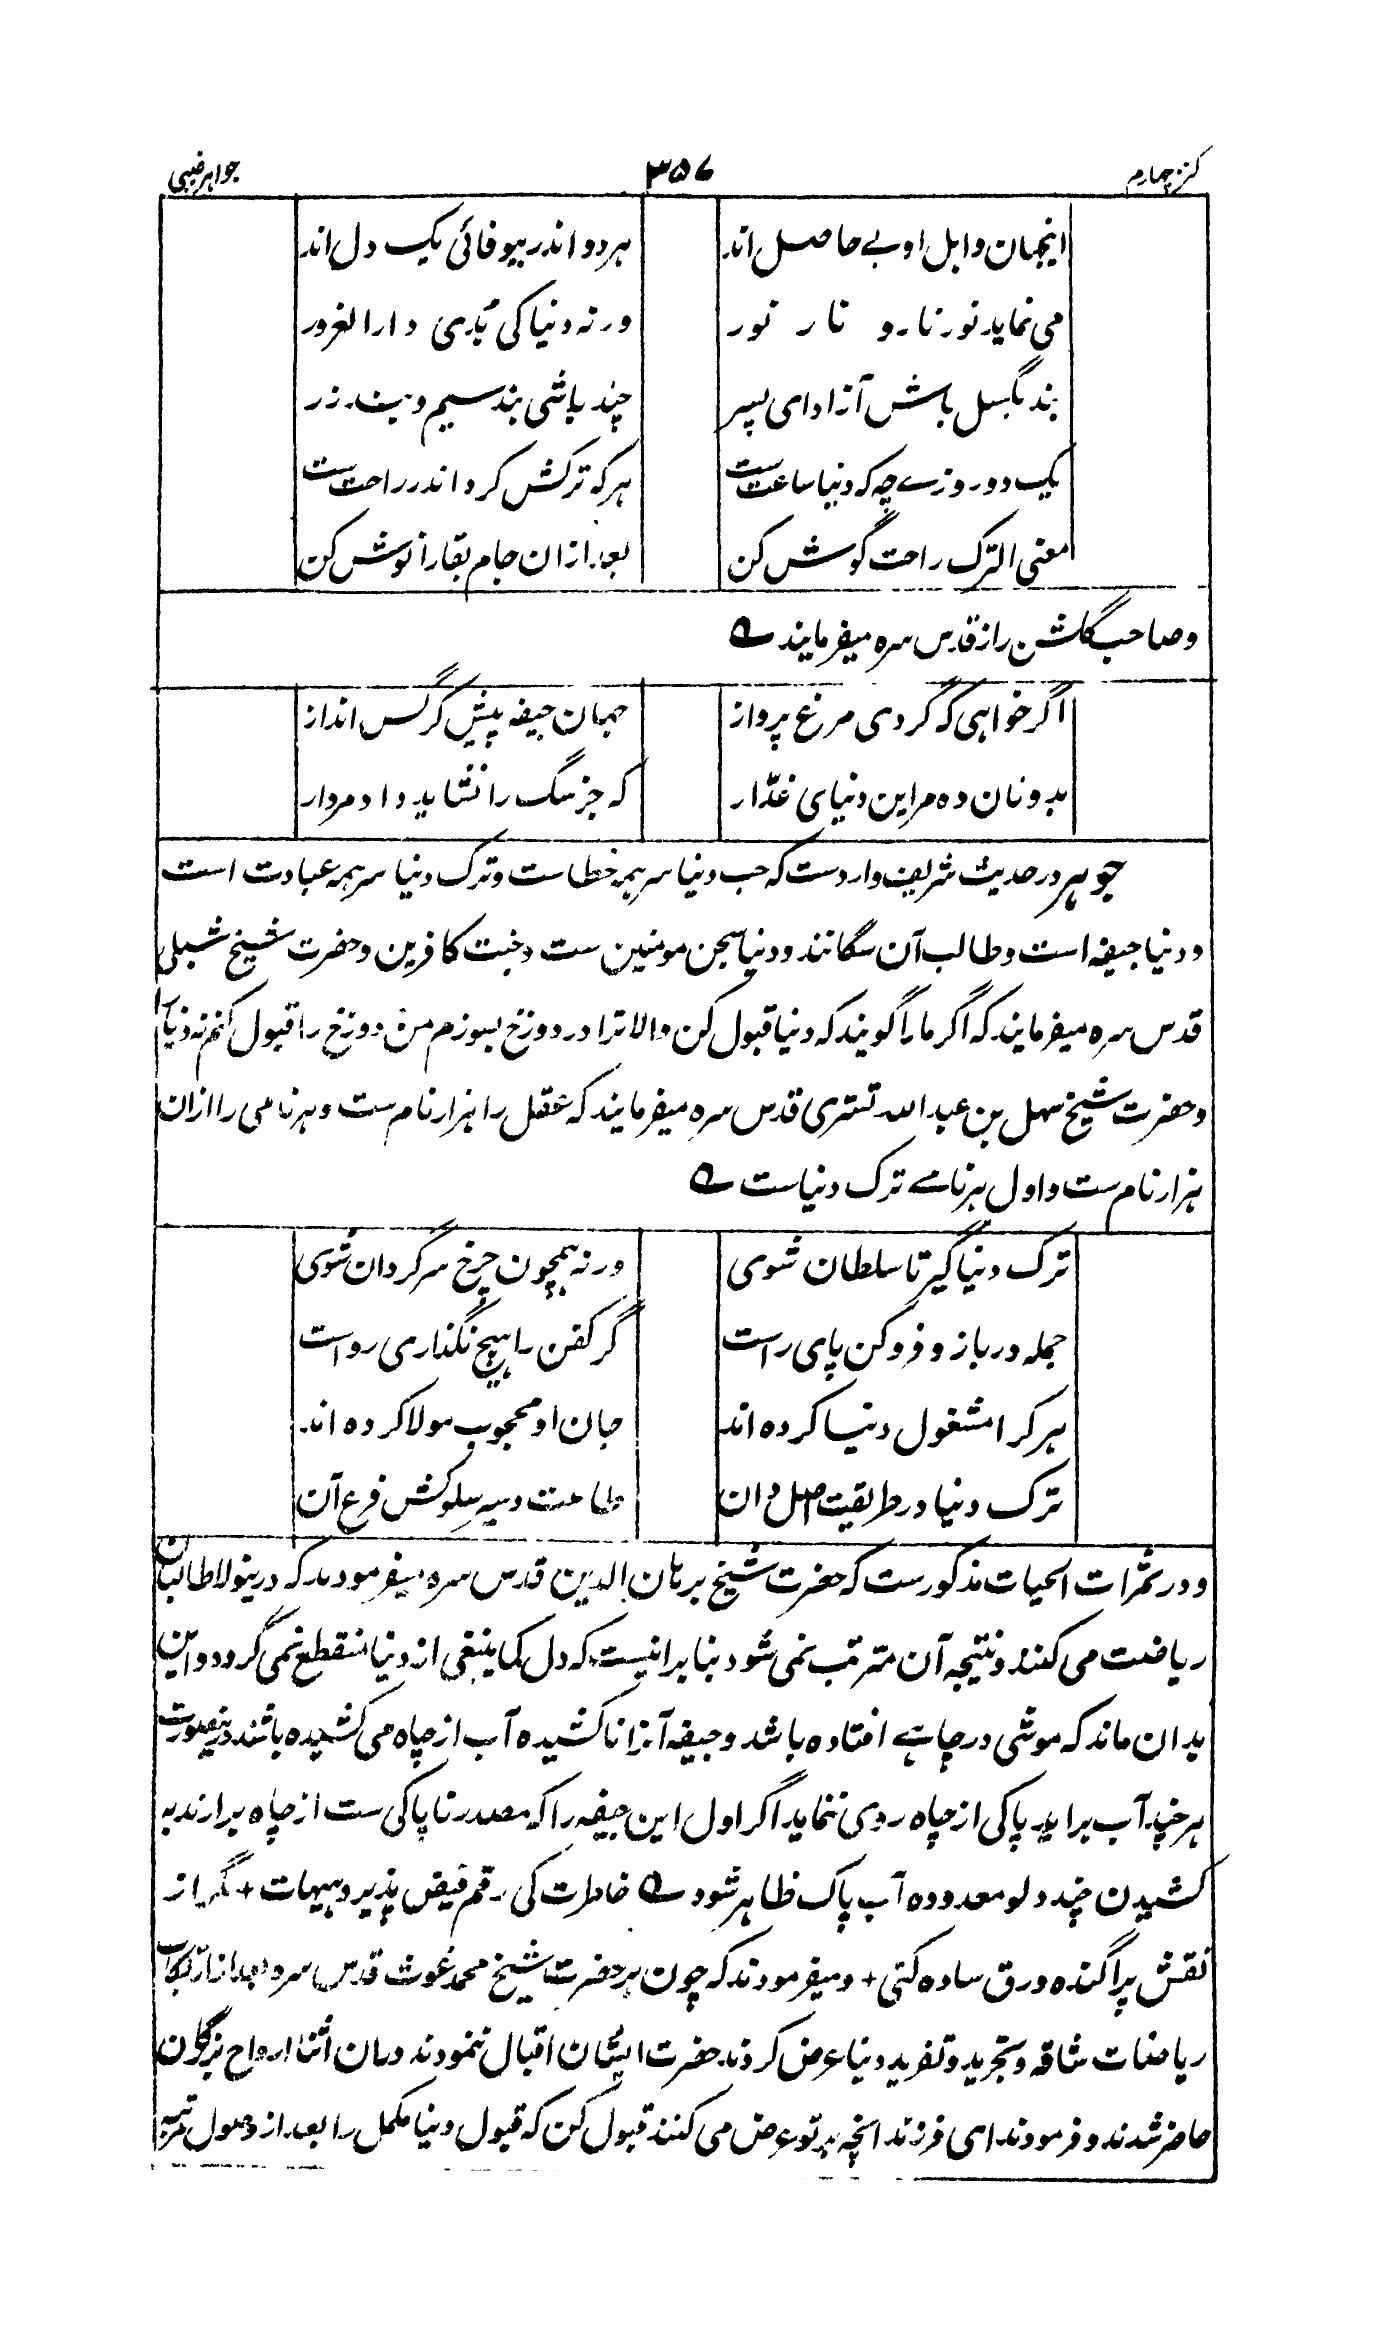 کنز چهارم ۳۵۶ جواهر غیبی
اینجهان و اهل او بے حاصل اند هر دو اندر بیوفائی یک دل اند
می نماید نور نار و نار نور ورنه دنیا کی بُدی دار الغرور
بند بگسل باش آزاد ای پسر چند باشی بند سیم و بند زر
یک دو روزے چه که دنیا ساعت ست هر که ترکش کرد اندر راحت ست
معنی الترک راحت گوش کن بعد ازان جام بقا را نوش کن
و صاحب گلشن راز قدس سره میفرمایند ے
اگر خواهی که گردی مرغ پرواز جهان جیفه پیش گرگس انداز
بدونان ده مر این دنیای غدّار که جز سگ را نشاید داد مردار
جوهر در حدیث شریف وارد ست که حب دنیا سر همه خطاست و ترک دنیا سر همه عبادت است
و دنیا جیفه است و طالب آن سگانند و دنیا سجن مومنین ست و جنت کافرین و حضرت شیخ شبلی
قدس سره میفرمایند که اگر ما را گویند که دنیا قبول کن والا ترا در دوزخ بسوزم من دوزخ را قبول کنم نه دنیا را
و حضرت شیخ سهل بن عبد الله تستری قدس سره میفرمایند که عقل را هزار نام ست و هر نامی را ازان
هزار نام ست و اول هر نامے ترک دنیاست ے
ترک دنیا گیر تا سلطان شوی ورنه همچون چرخ سرگردان شوی
جمله در باز و فرو کن پای راست گر کفن را هیچ نگذاری رواست
هر کرا مشغول دنیا کرده اند جان او محجوب مولا کرده اند
ترک دنیا در طریقت اصل دان طاعت و سیر سلوکش فرع آن
و در ثمرات الحیات مذکور ست که حضرت شیخ برهان الدین قدس سره میفرمودند که درینولا طالبان
ریاضت می کنند و نتیجه آن مترتب نمی شود بنا بر انیست که دل کما ینبغی از دنیا منقطع نمی گردد و این
بدان ماند که موشی در چاهے افتاده باشد و جیفه آنرا ناکشیده آب از چاه می کشیده باشند درینصورت
هر چند آب براید پاکی از چاه روی ننماید اگر اول این جیفه را که مصدر ناپاکی ست از چاه برارند به
کشیدن چند دلو معدوده آب پاک ظاهر شود ے خاطرت کی رقم فیض پذیرد هیهات + مگر از
نقش پراگنده ورق ساده کنی + و میفرمودند که چون بر حضرت شیخ محمد غوث قدس سره بعد از ارتکاب
ریاضات شاقه و تجرید و تفرید دنیا عرض کردند حضرت ایشان اقبال ننمودند دران اثنا ارواح بزرگان
حاضر شدند و فرمودند ای فرزند انچه بر تو عرض می کنند قبول کن که قبول دنیا مکمل را بعد از وصول مرتبه